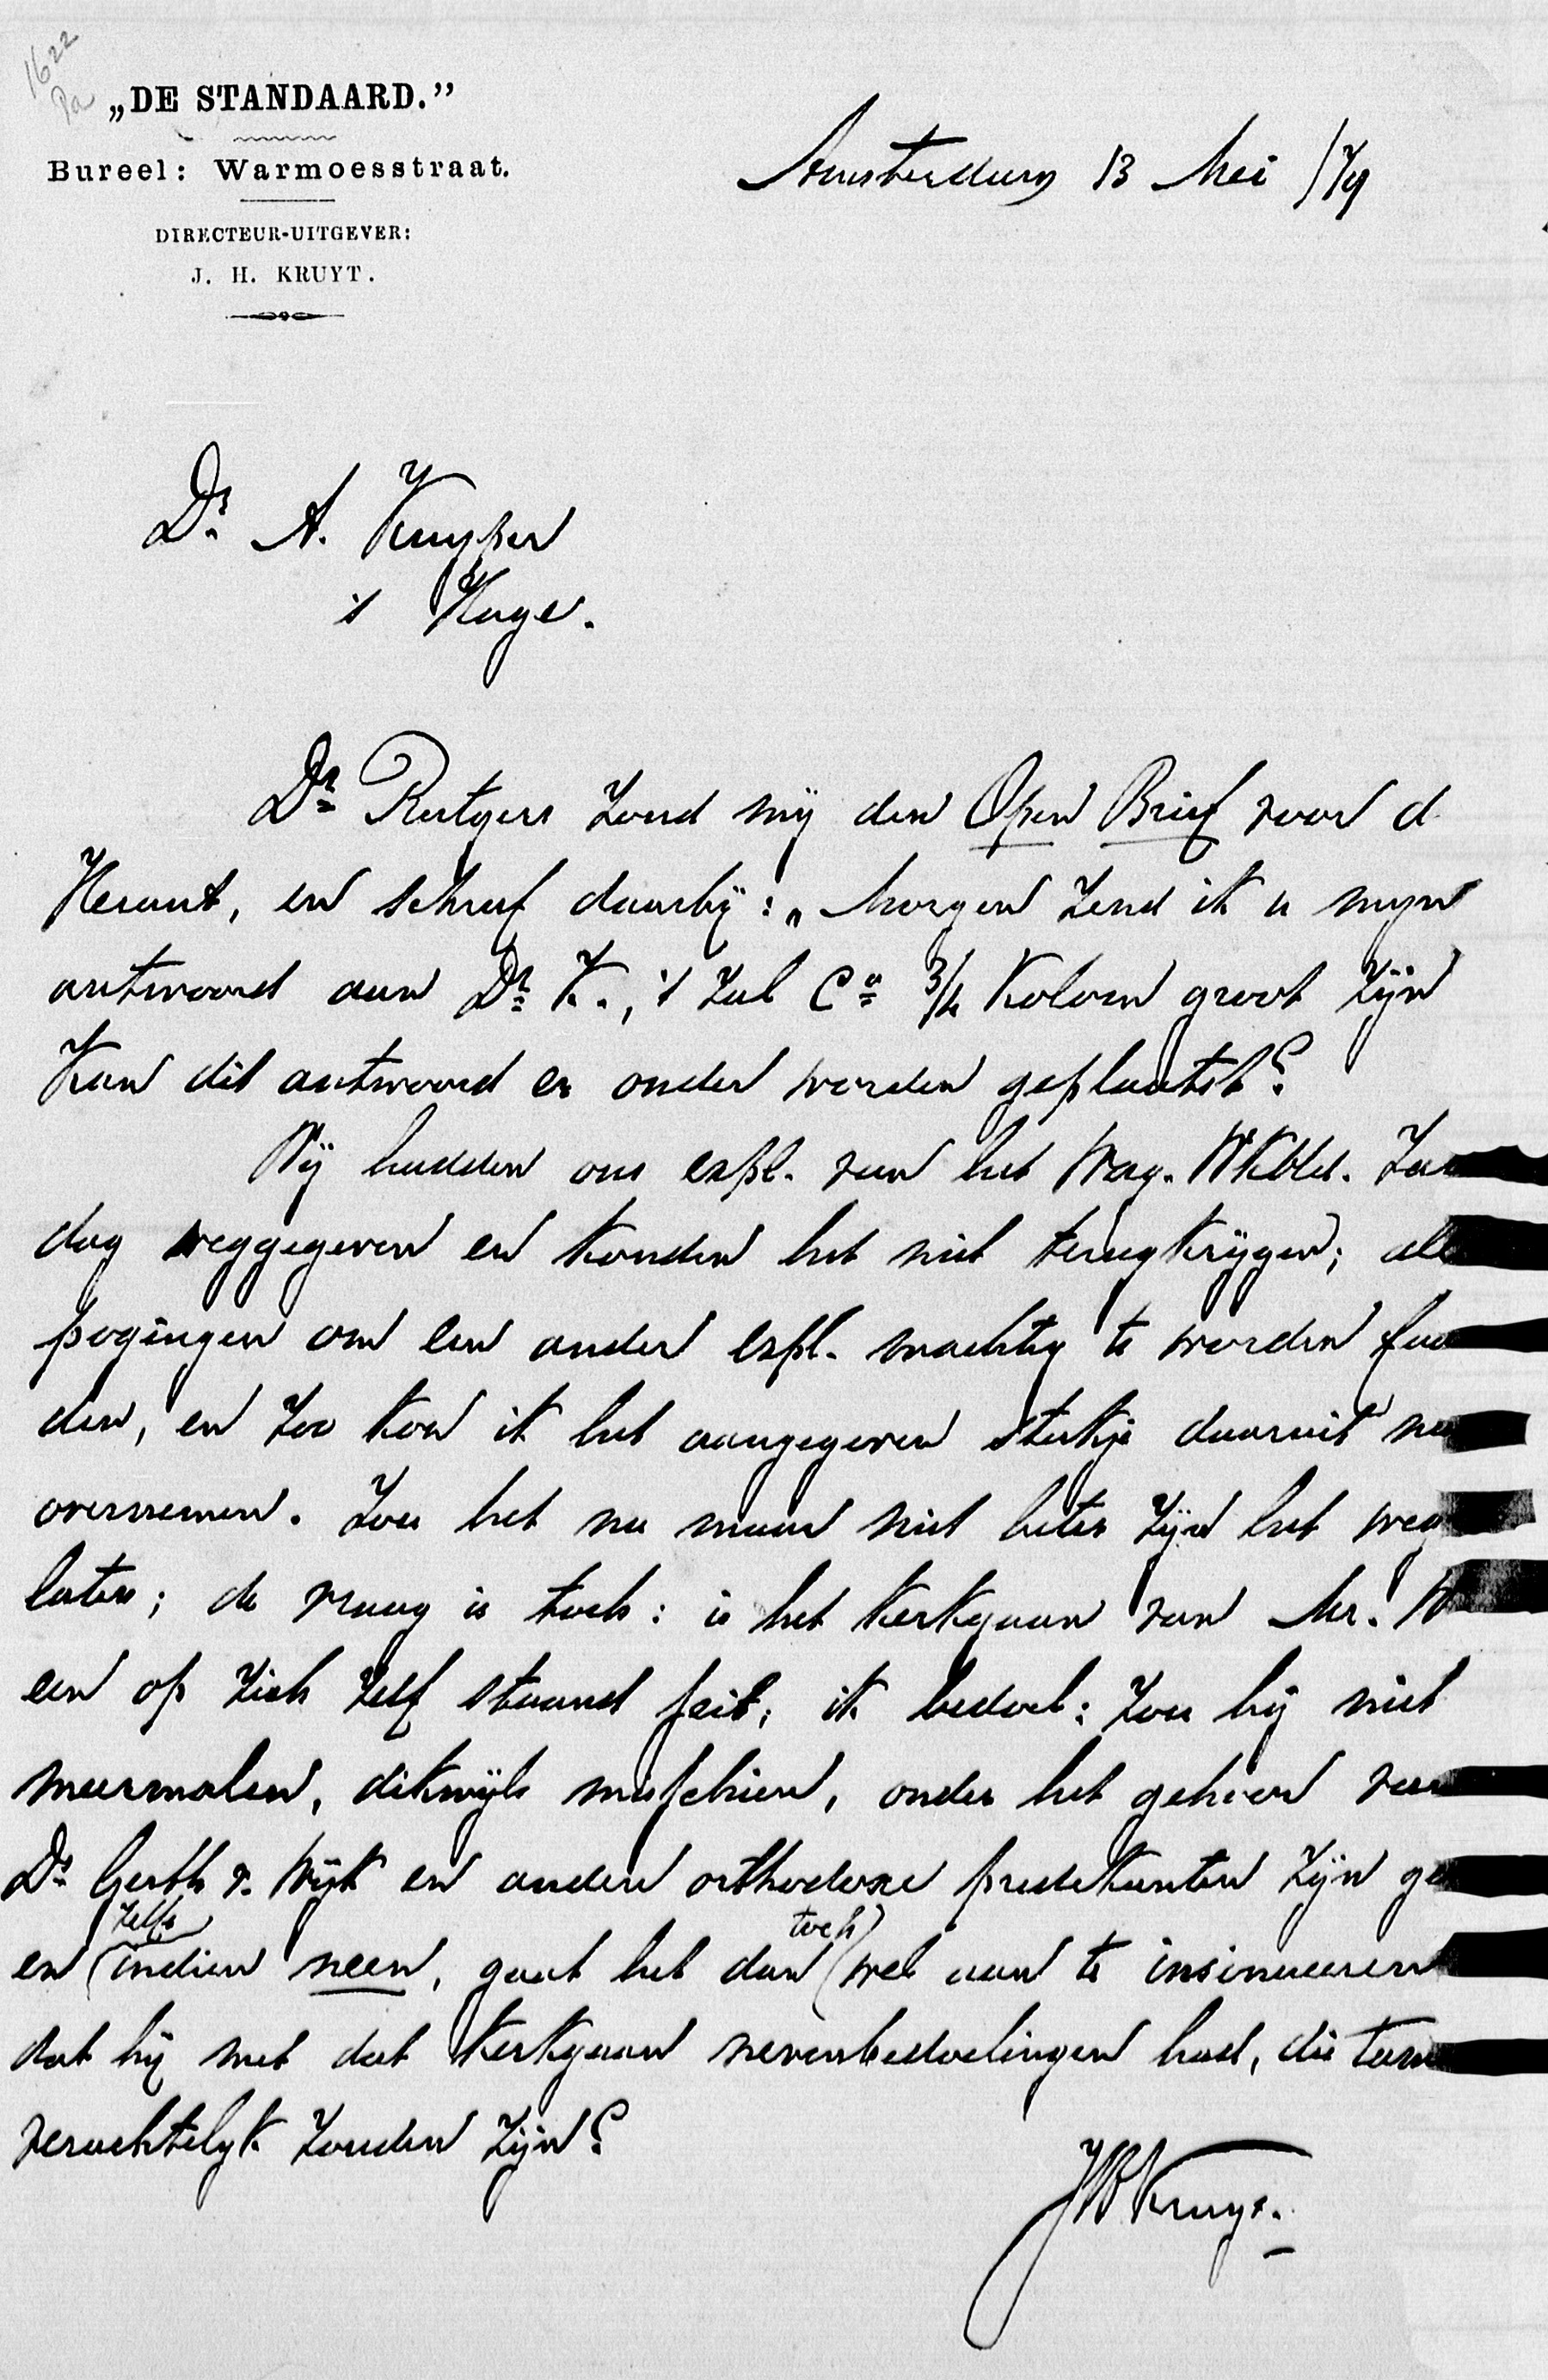 1622
„DE STANDAARD.”
Bureel: Warmoesstraat.
DIRECTEUR-UITGEVER:
J. H. KRUYT.
Amsterdam 13 Mei /79
Dr. A. Kuyper
's Hage.
Dr. Rutgers zond mij den Open Brief voor d
Heraut, en schreef daarbij: „Morgen zend ik u mijn
antwoord aan Dr. K., 't zal Ca 3/4 kolom groot zijn
Kan dit antwoord er onder worden geplaatst?
Wij hadden ons expl. van het Wag. Wkbld.
dag weggegeven en konden het niet terugkrijgen; alle
pogingen om een ander expl. machtig te worden faal
den, en zoo kon ik het aangegeven stukje daaruit
overnemen. Zou het nu maar niet beter zijn het weg
laten; de vraag is toch: is het kerkgaan van Mr. W
een op zich zelf staand feit; ik bedoel: zou hij niet
meermalen, dikwijls misschien, onder het gehoor van
Dr. Gerth v. Wijk en andere orthodoxe predikanten zijn ge
en zelfs indien neen, gaat het dan toch wel aan te insinueeren
dat hij met dat kerkgaan nevenbedoelingen had, die
verachtelijk zouden zijn?
JHKruyt.